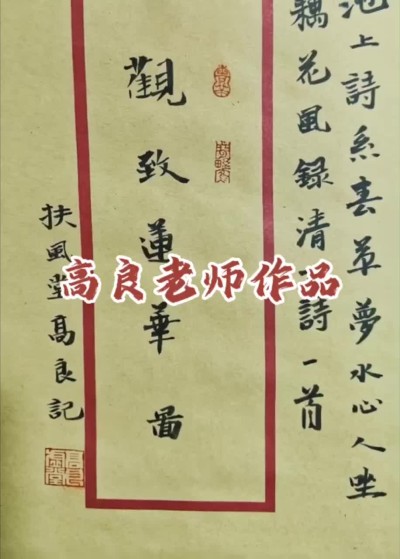 池上詩系春草夢水心人坐
藕花風錄清詩一首
觀致蓮華啚
扶風堂高良記
高良老师作品